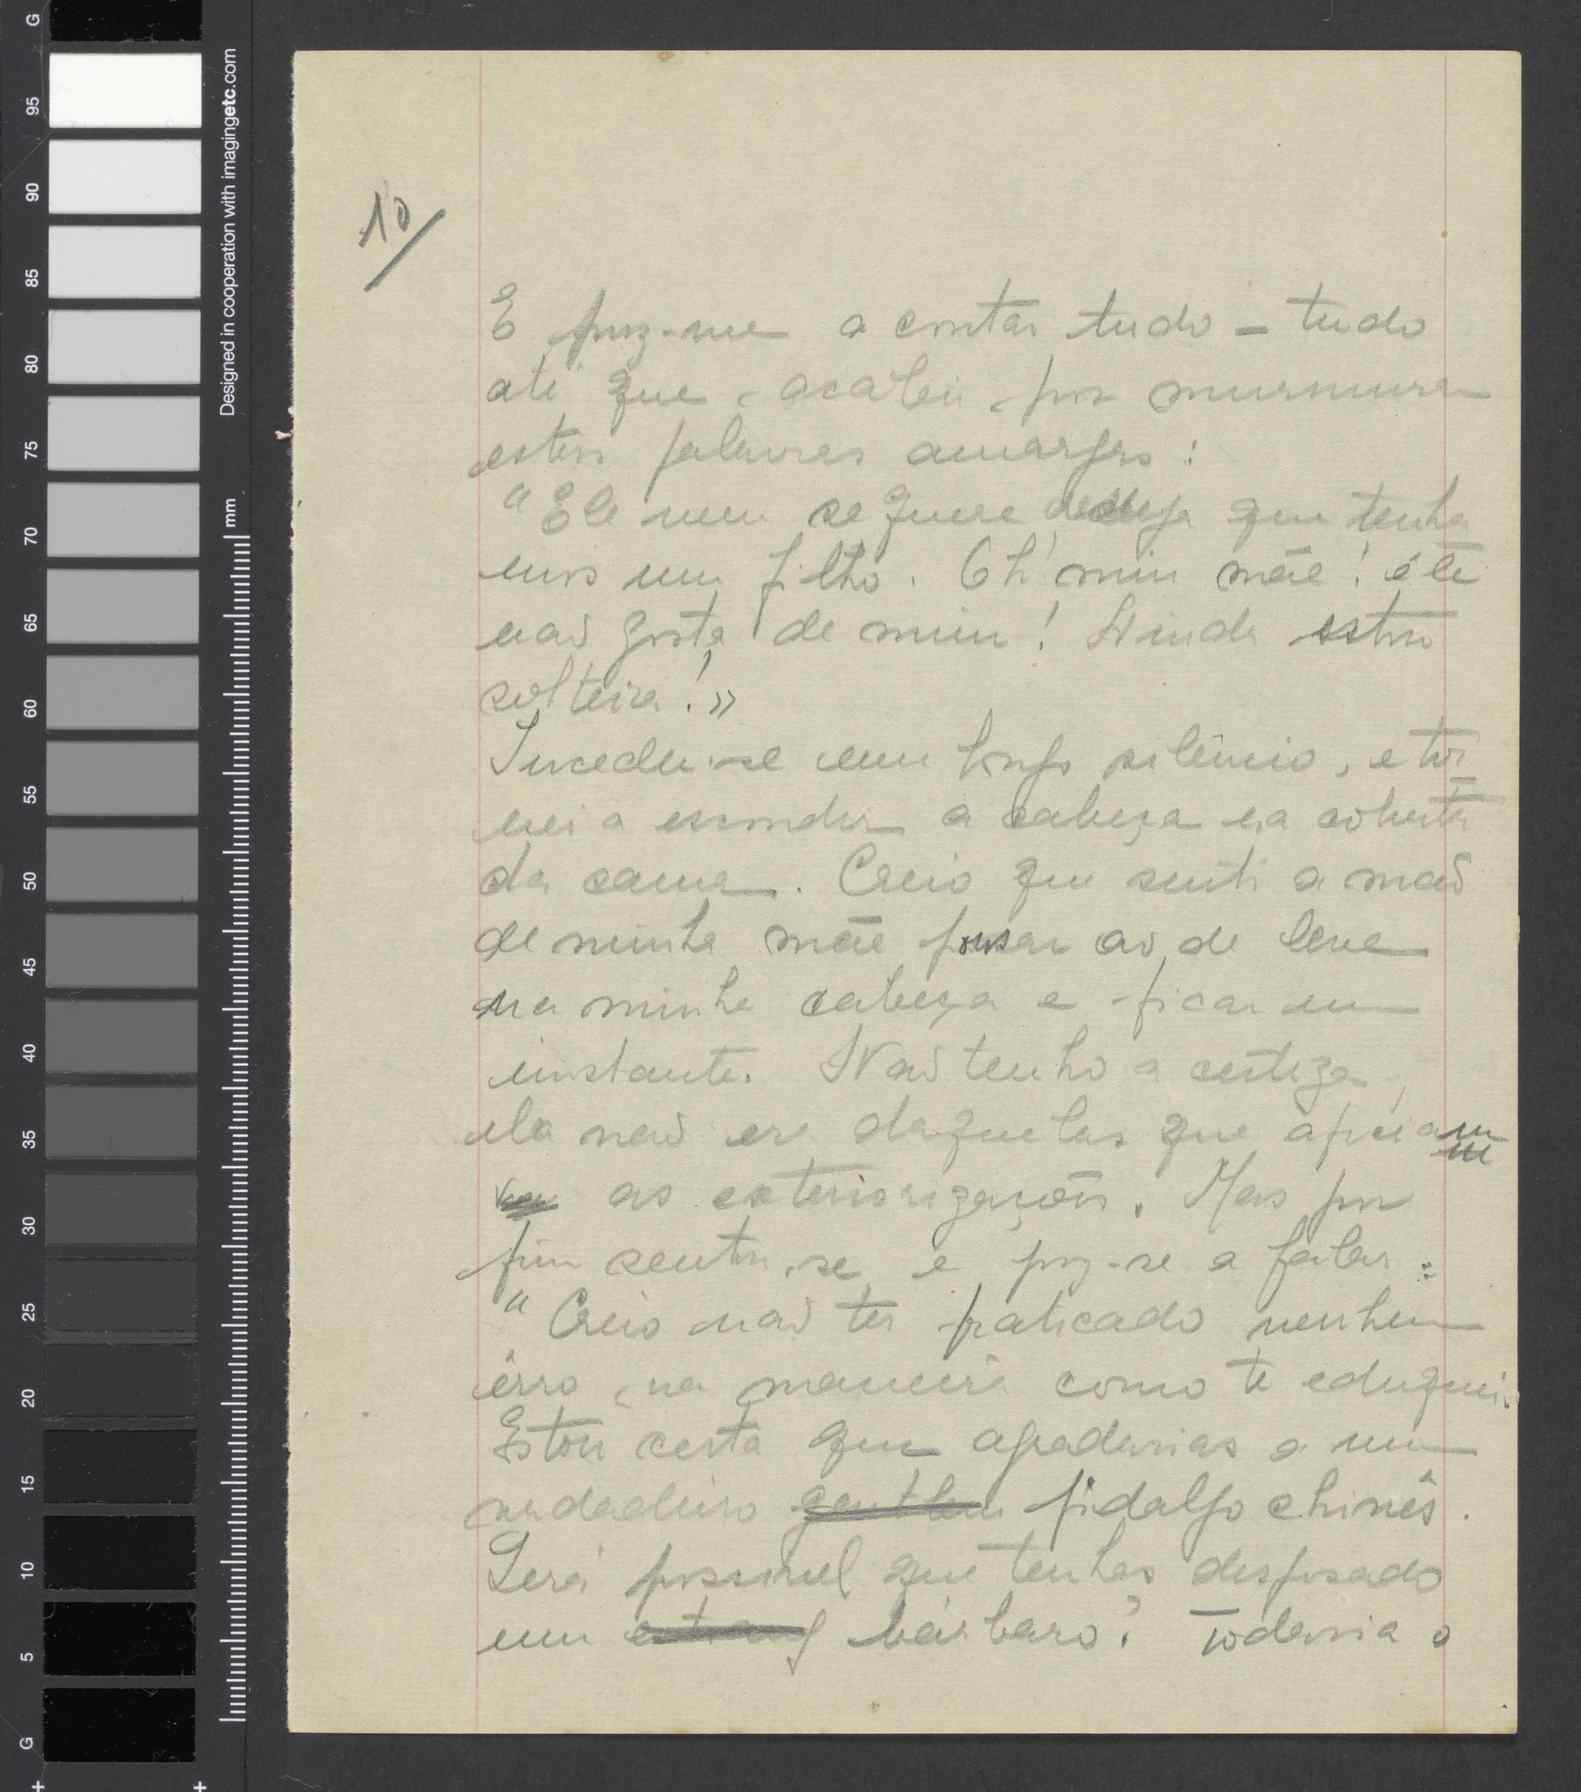 10/
E puz-me a contar tudo - tudo
até que acabei por murmurar
estas palavras amargas:
"Ele nem sequere deseja que tenha
mos um filho. Oh! min mãe! êle
não gosta de mim! Ainda estou
solteira!»
Sucedeu-se um longo silêncio, e tor
nei a esconder a cabeça na coberta
da cama. Creio que senti a mão
de minha mãe pousar ao de leve
na minha cabeça e ficar um
instante. Não tenho a certeza,
ela não era daquelas que apreciam
as exteriorizações. Mas por
fim sentou-se e poz-se a falar:
"Creio não ter praticado nenhum
êrro na maneira como te eduquei.
Estou certa que agradarias a um
verdadeiro gentlem fidalgo chinês.
Será possivel que tenhas desposado
um estrang bárbaro? Todavia o
G
95
90
85
80
75
70
65
60
55
50
45
40
35
30
25
20
15
10
5
G
Designed in cooperation with imagingetc.com
mm